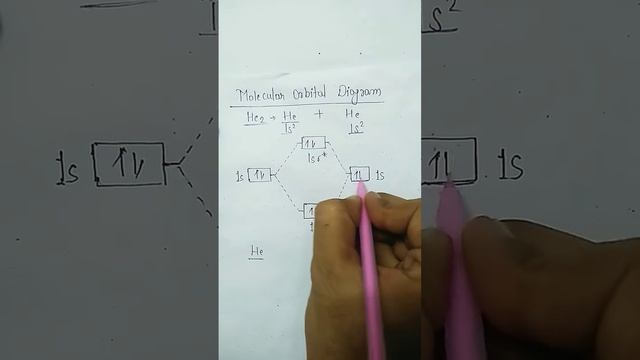 Molecular Orbital Diagram
He₂ → He + He
1s² 1s²
1s σ*
1s 1s
He